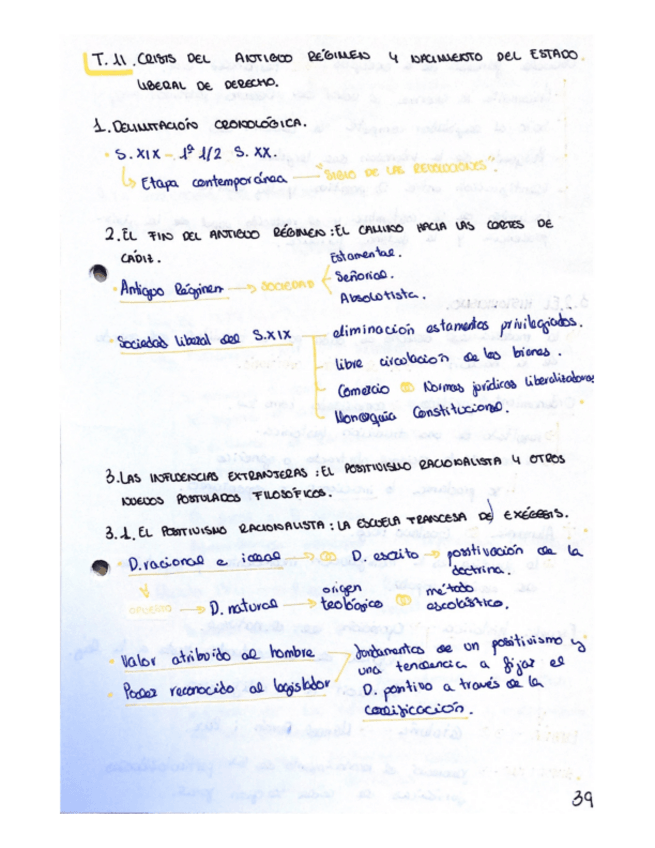 T. 11. CRISIS DEL ANTIGUO RÉGIMEN Y NACIMIENTO DEL ESTADO
LIBERAL DE DERECHO.
1. DELIMITACIÓN CRONOLÓGICA.
S. XIX - 1ª 1/2 S. XX.
Etapa contemporánea "SIGLO DE LAS REVOLUCIONES".
2. EL FIN DEL ANTIGUO RÉGIMEN: EL CAMINO HACIA LAS CORTES DE
CÁDIZ.
Antiguo Régimen → SOCIEDAD
Estamental.
Señorial.
Absolutista.
Sociedad liberal del S.XIX
eliminación estamentos privilegiados.
libre circulación de los bienes.
Comercio Normas jurídicas liberalizadoras
Monarquía Constitucional.
3. LAS INFLUENCIAS EXTRANJERAS: EL POSITIVISMO RACIONALISTA Y OTROS
NUEVOS POSTULADOS FILOSÓFICOS.
3.1. EL POSITIVISMO RACIONALISTA: LA ESCUELA FRANCESA DE EXÉGESIS.
D. racional e ideal → D. escrito → positivación de la
doctrina.
→ D. natural → origen teológico método escolástico.
Valor atribuido al hombre
Poder reconocido al legislador
fundamentos de un positivismo y
una tendencia a fijar el
D. positivo a través de la
codificación.
39